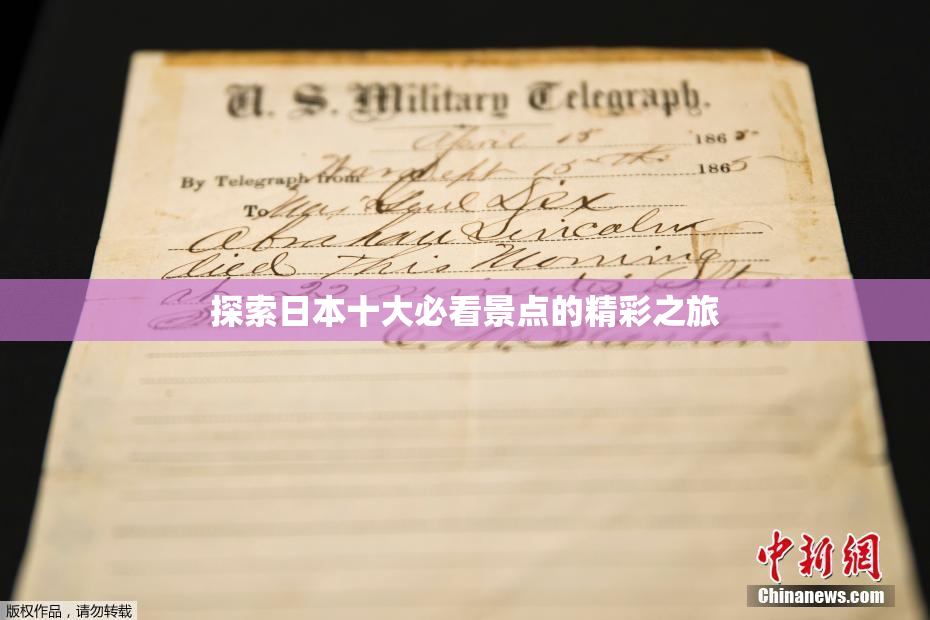 U. S. Military Telegraph.
April 15 1865
By Telegraph from War Dept 15th 1865
To Maj Genl Dix
Abraham Lincoln
died This Morning
at 22 minutes after
探索日本十大必看景点的精彩之旅
E. M. Stanton
中新网
Chinanews.com
版权作品，请勿转载